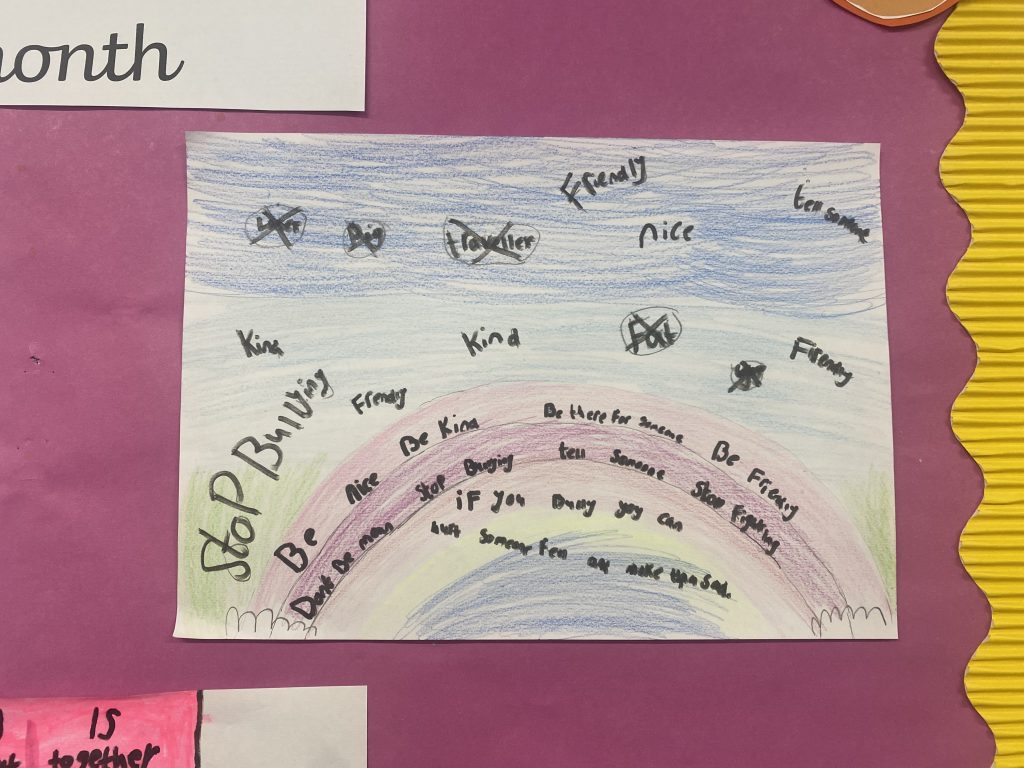 month
Friendly
tell someone
Pig
traveller
nice
Kind
Kind
Fat
Friendly
Stop Bullying
Friendly
Be nice Be Kind Be there for someone Be Friendly
Dont be mean Stop Bullying tell Someone Stop Fighting
iF you Bully you can
hurt Someone feelings make them sad
is
together